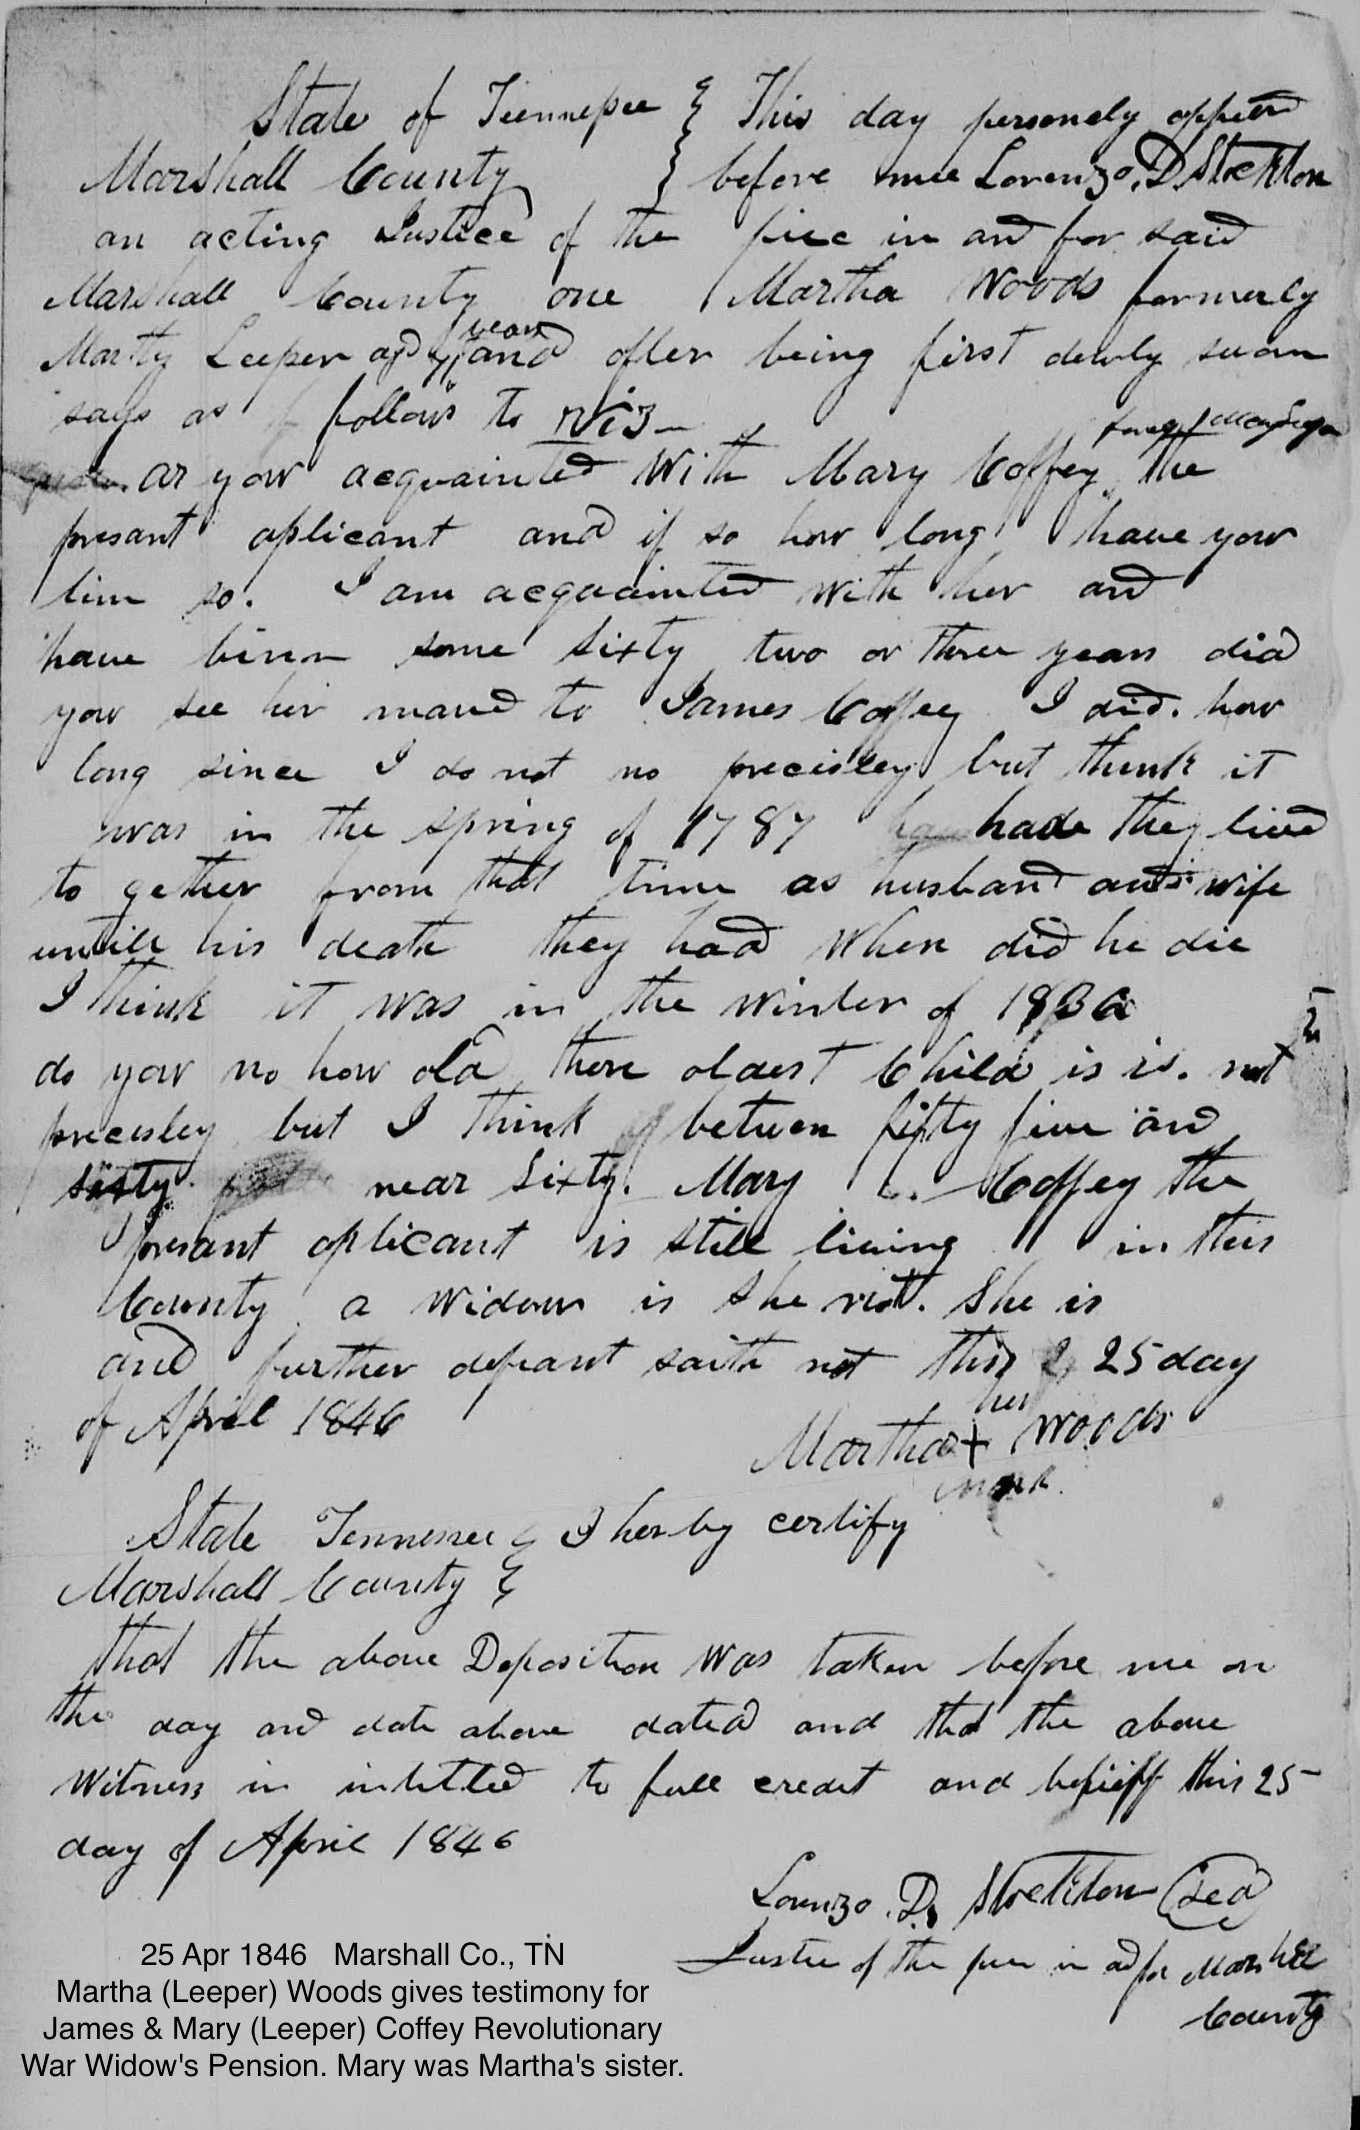 State of Tennessee } This day personely appeerd
Marshall County } before mee Lorenzo D Stockton
an acting Justice of the piec in and for said
Marshall County one Martha Woods formerly
Leeper agd years and after being first dewly sworn
says as follows to viz
ar your acquainted with Mary Coffey the
presant aplicant and if so how long have your
bin so. I am acquainted with her and
have binn some sixty two or three years did
your see her maried to James Coffey I did. how
long since I do not no precisley but think it
was in the spring of 1787 hade they lived
to gether from that time as husband and wife
untill his death they had when did he die
I think it was in the winter of
do your no how old there oldest Child is is. not
precisley but I think between fifty five and
sixty near sixty. Mary Coffey the
presant aplicant is still living in this
County a widow is she not. She is
and further depant saith not this 25 day
of April 1846
her
Martha + Woods
mark
State Tennessee } I herby certify
Marshall County }
that the above Deposition was taken before me on
the day and date above dated and that the above
Witness is intitled to full credit and belieff this 25
day of April 1846
Lorenzo D. Stockton Seal
Justice of the piec in ad for Marshall
County
25 Apr 1846 Marshall Co., TN
Martha (Leeper) Woods gives testimony for
James & Mary (Leeper) Coffey Revolutionary
War Widow's Pension. Mary was Martha's sister.